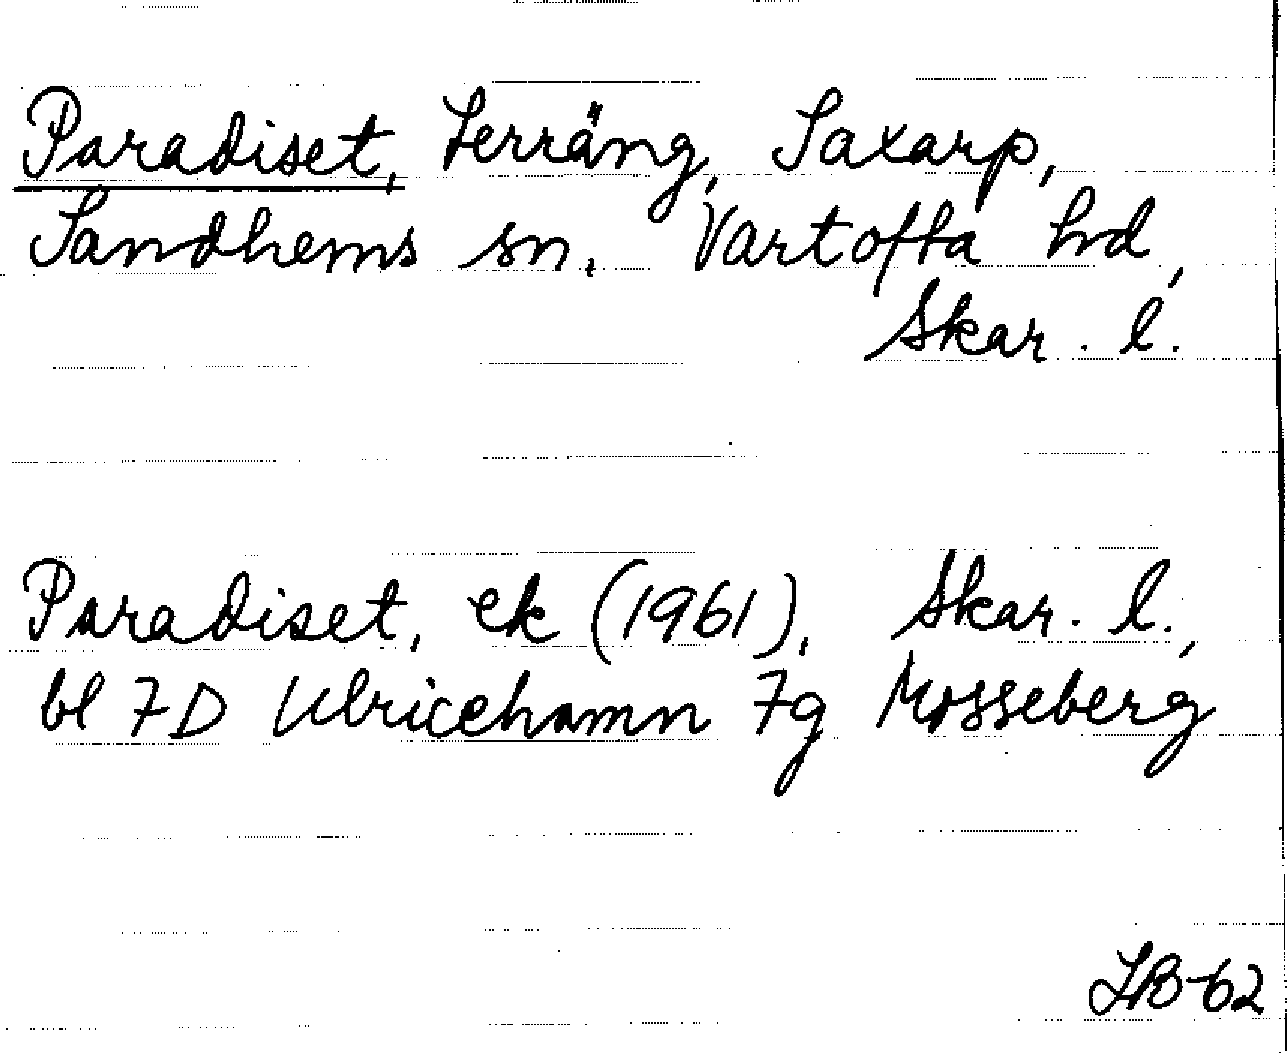 Paradiset, terräng, Saxarp,
Sandhems sn. Vartofta hd,
Skar. l.
Paradiset, ek (1961), Skar. l.,
bl 7D Ulricehamn 7g Mosseberg
LB-62